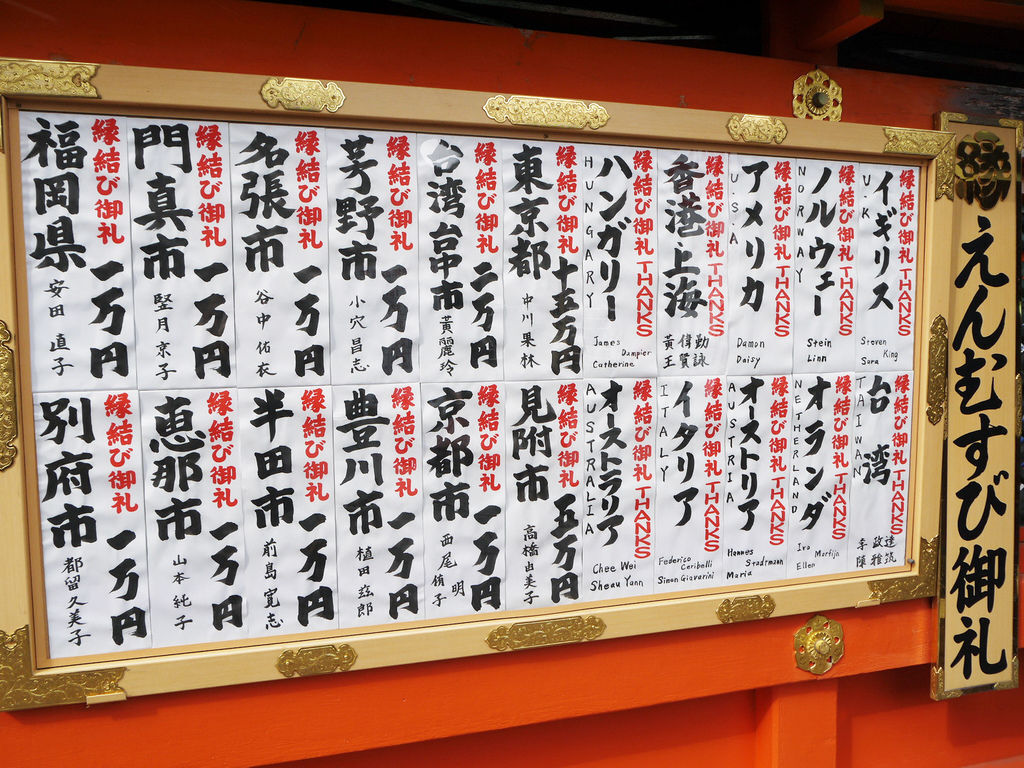 えんむすび御礼
縁結び御礼 THANKS
イギリス
U.K
Steven
Sara King
縁結び御礼 THANKS
ノルウェー
NORWAY
Stein
Linn
縁結び御礼 THANKS
アメリカ
U.S.A
Damon
Daisy
縁結び御礼 THANKS
香港上海
黄偉勤
王賢詠
縁結び御礼 THANKS
ハンガリー
HUNGARY
James Dampier
Catherine
縁結び御礼
東京都
十五万円
中川果林
縁結び御礼
台湾台中市
二万円
黄麗玲
縁結び御礼
芋野市
一万円
小穴昌志
縁結び御礼
名張市
一万円
谷中佑衣
縁結び御礼
門真市
一万円
竪月京子
縁結び御礼
福岡県
一万円
安田直子
縁結び御礼 THANKS
台湾
TAIWAN
李政達
陳雅筑
縁結び御礼 THANKS
オランダ
NETHERLAND
Ivo Martijn
Ellen
縁結び御礼 THANKS
オーストリア
AUSTRIA
Hannes Stadtmann
Maria
縁結び御礼 THANKS
イタリア
ITALY
Federico Ceribelli
Simon Giavarini
縁結び御礼 THANKS
オーストラリア
AUSTRALIA
Chee Wei
Sheau Yann
縁結び御礼
見附市
五万円
高橋由美子
縁結び御礼
京都市
一万円
西尾 明
侑子
縁結び御礼
豊川市
一万円
植田
郎
縁結び御礼
半田市
一万円
前島寛志
縁結び御礼
恵那市
一万円
山本純子
縁結び御礼
別府市
一万円
都留久美子